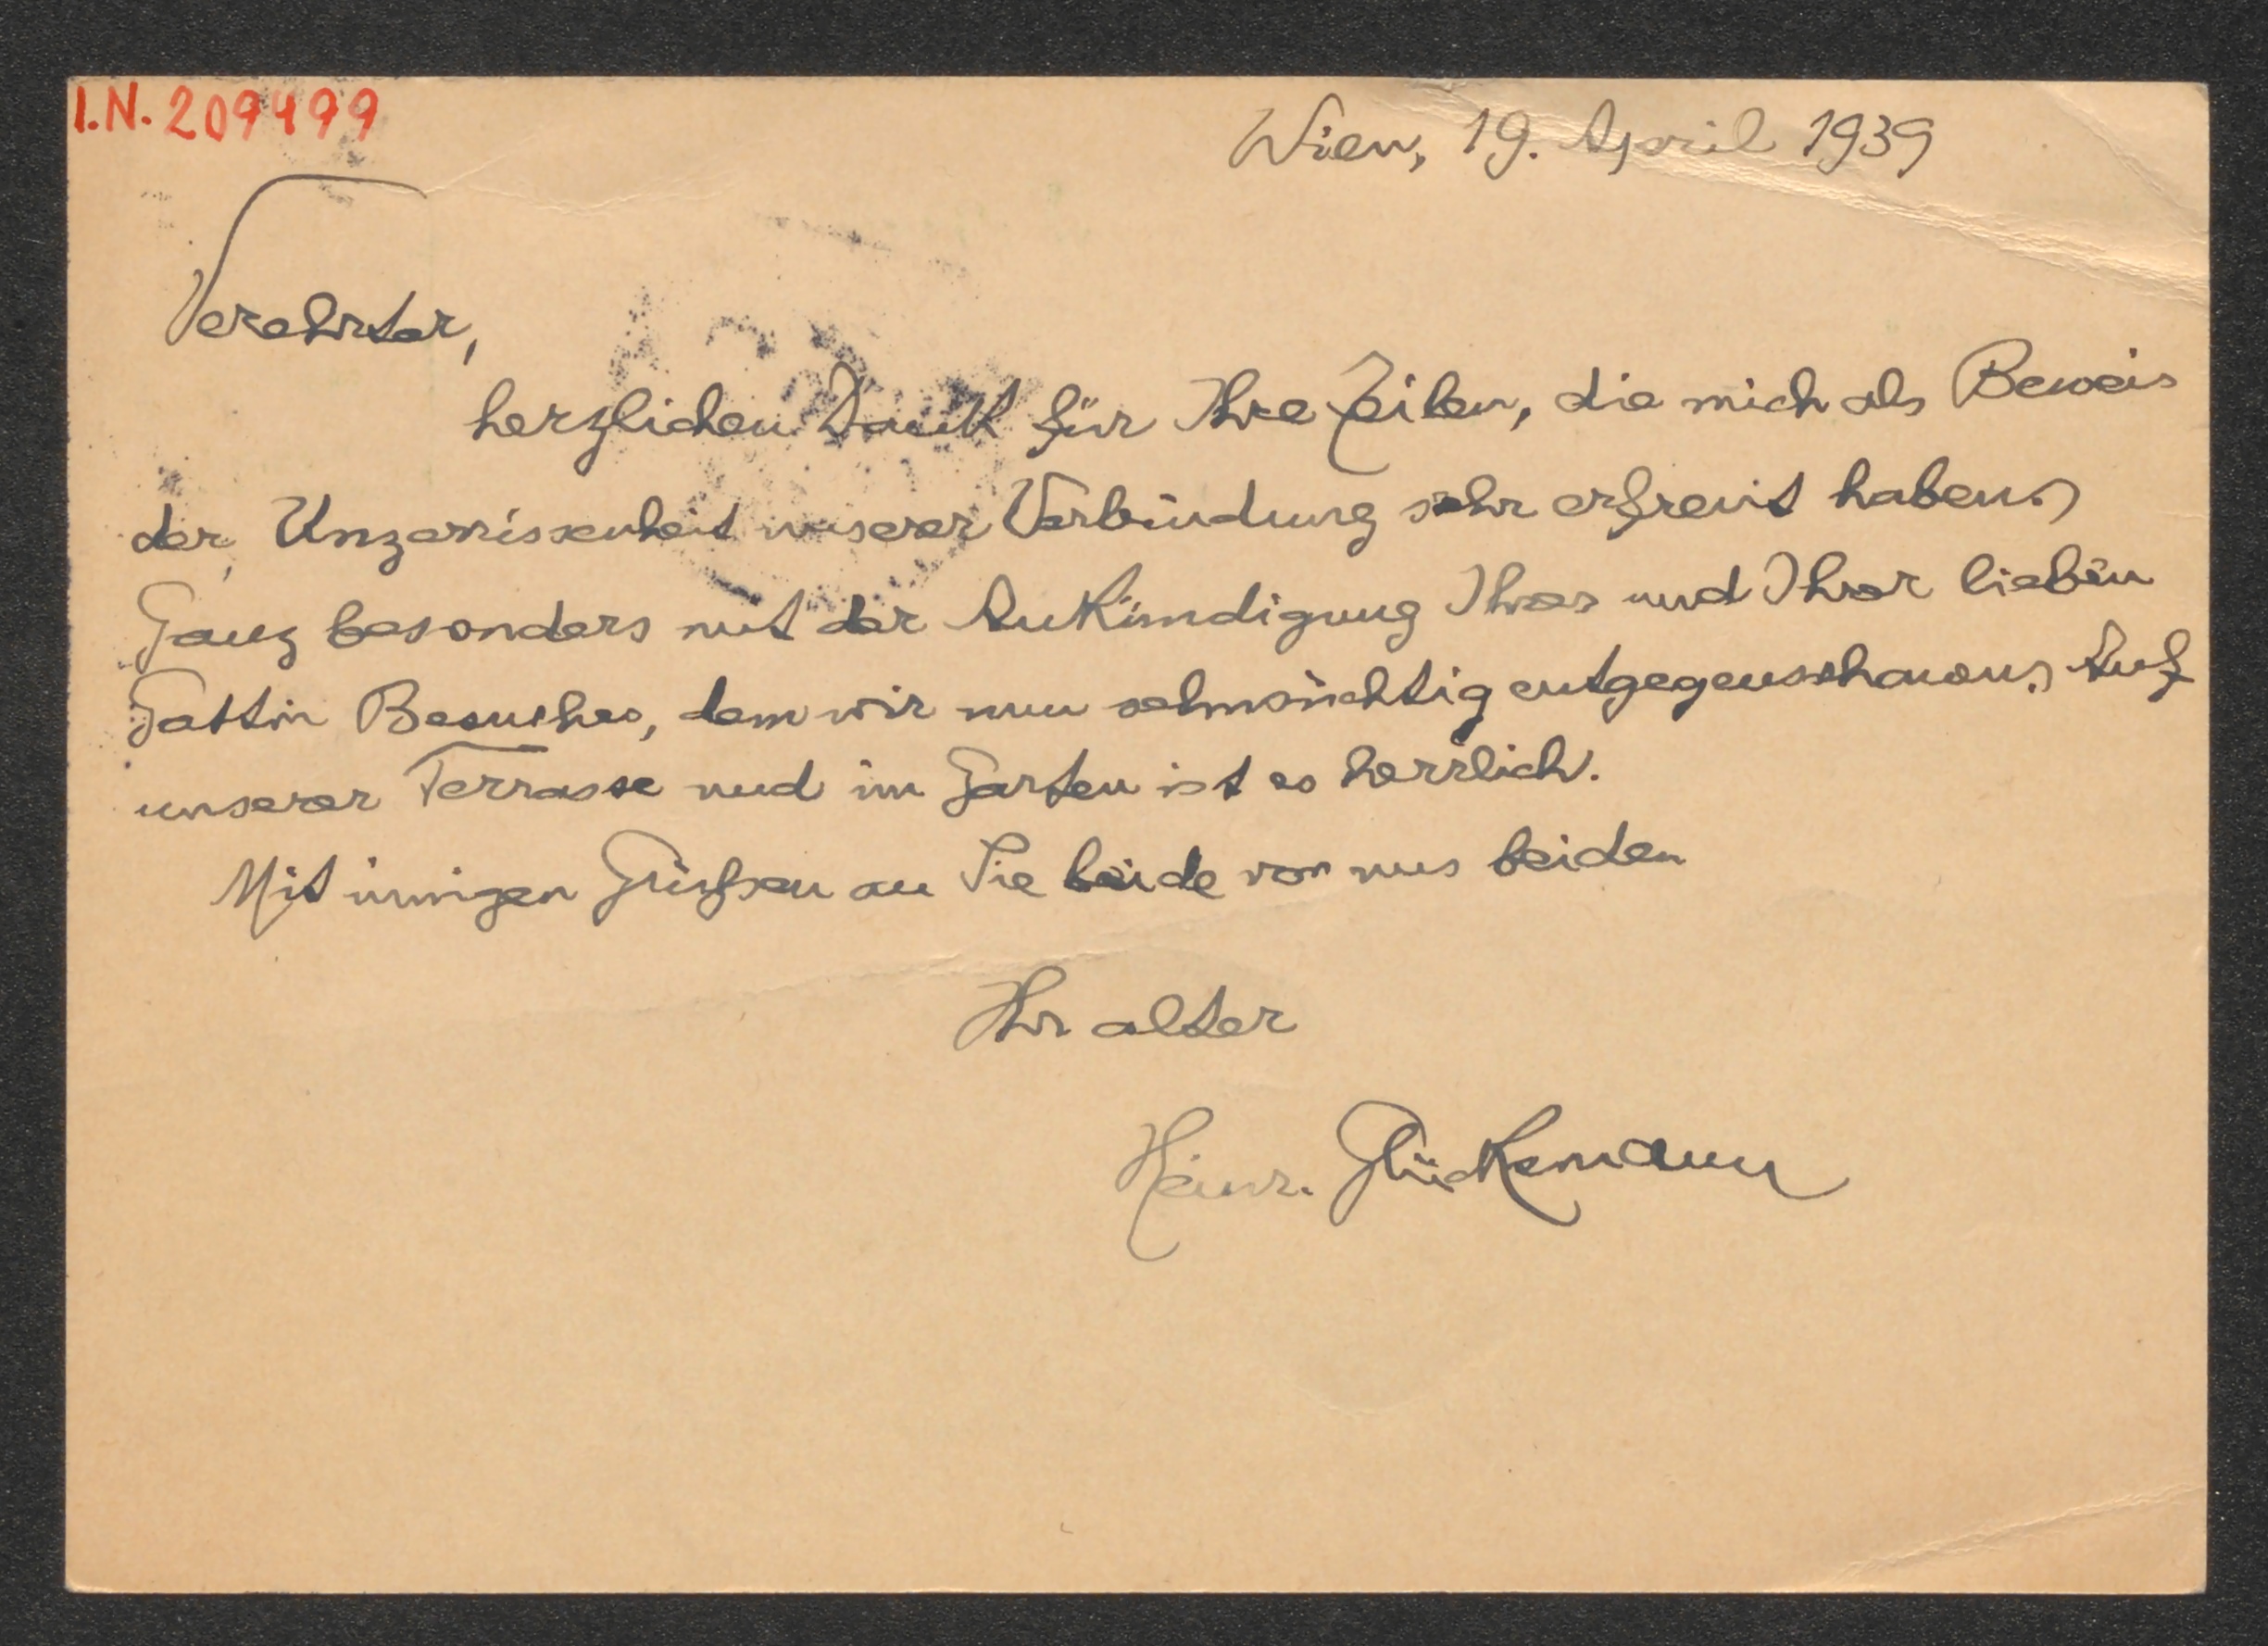 I.N. 209499
Wien, 19. April 1939
Verehrter,
herzlichen Dank für Ihre Zeilen, die mich als Beweis
der Unzerrissenheit unserer Verbindung sehr erfreut haben.
Ganz besonders mit der Ankündigung Ihres und Ihrer lieben
Gattin Besuches, dem wir nun sehnsüchtig entgegenschauen. Auf
unserer Terrasse und im Garten ist es herrlich.
Mit innigen Grüßen an Sie beide von uns beiden
Ihr alter
Heinr. Glücksmann